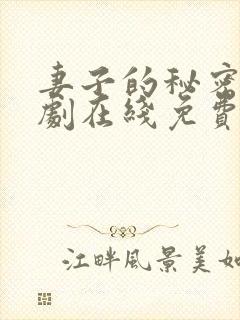 妻子的秘密
劇在綫免費
江畔風景美如